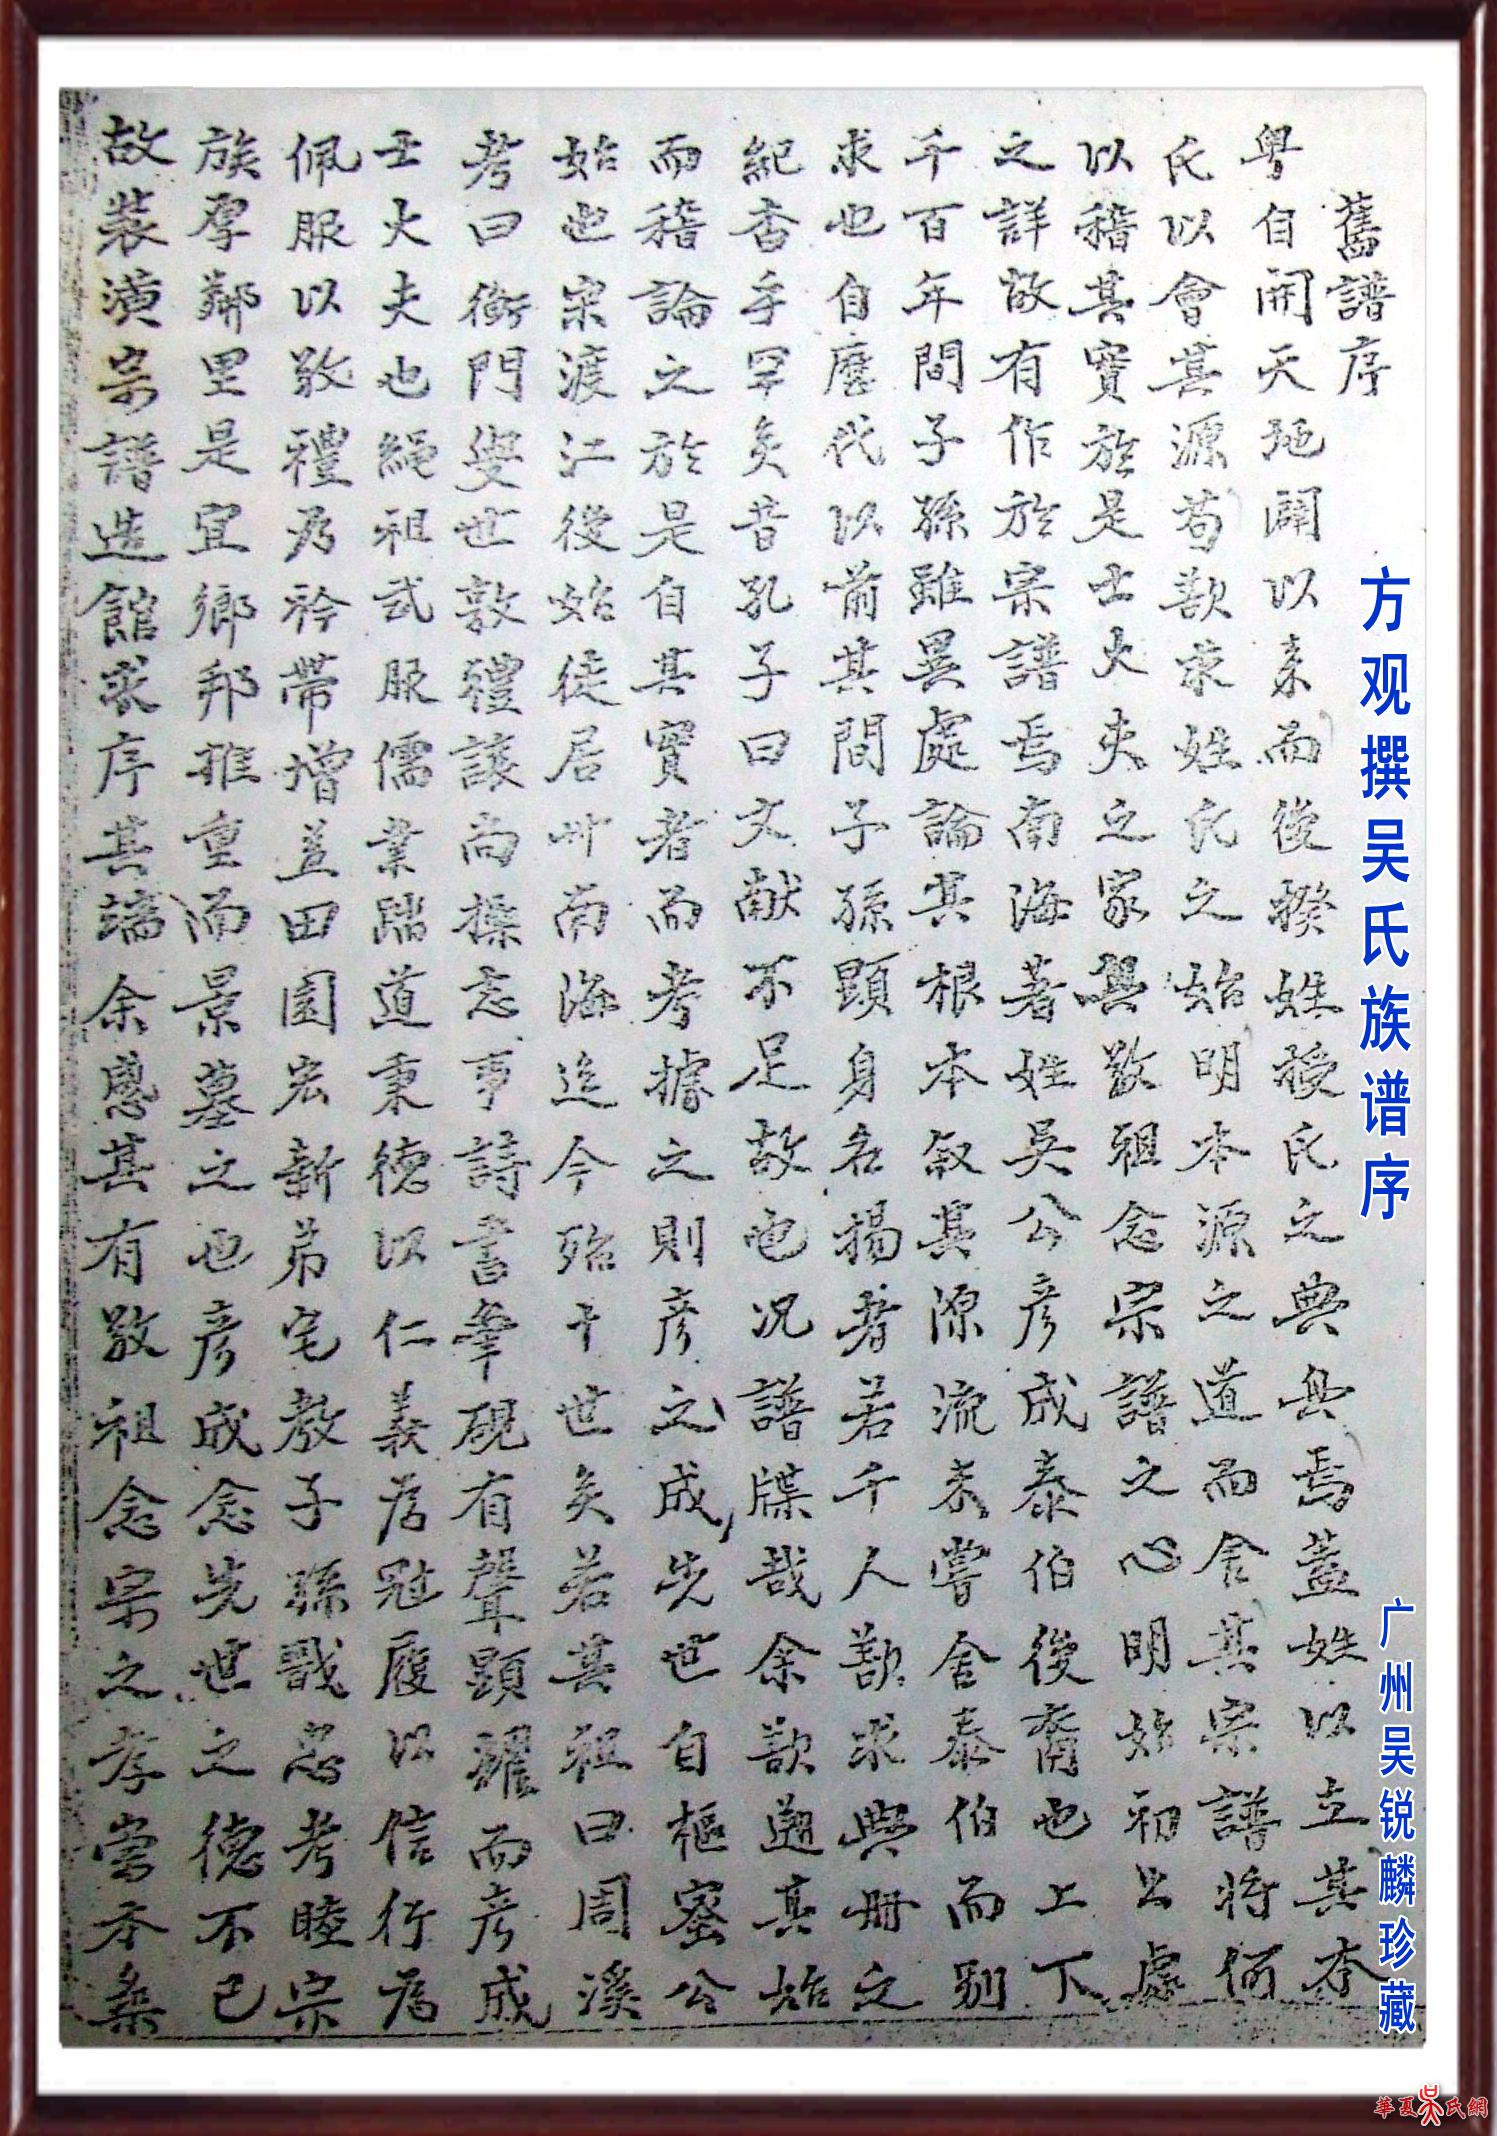 方观撰吴氏族谱序
广州吴锐麟珍藏
舊譜序
粵自開天地闢以来而後揆姓授氏之典具焉蓋姓以立其本
氏以會其源苟欲求姓氏之始明本源之道而舍其宗譜將何
以稽其實於是士大夫之家興敬祖念宗譜之心明始初出處
之詳故有作於宗譜焉南海著姓吳公彥成泰伯後裔也上下
千百年間子孫雖異處論其根本叙其源流未嘗舍泰伯而別
求也自歷代以前其間子孫顕身名揚者若千人歚求典册之
紀杳乎罕矣昔孔子曰文献不足故也况譜牒哉余歚遡其始
而稽論之於是自其實者而考據之則彥之成先世自樞密公
始也宗渡江後始徒居廿南海迄今殆十世矣若其祖曰周溪
考曰衡門奕世敦禮讓尚操志事詩書筆硯有聲顕耀而彥成
士大夫也繩祖武服儒業蹈道秉德以仁義為冠履以信行為
佩服以敬禮乃衿带增益田園宏新弟宅教子孫戰忍考睦宗
族厚鄰里是宜鄉邦推重而景慕之也彥成念先世之德不已
故装潢宗譜造館求序其端余感其有敬祖念宗之孝當不槩
華夏吴氏網